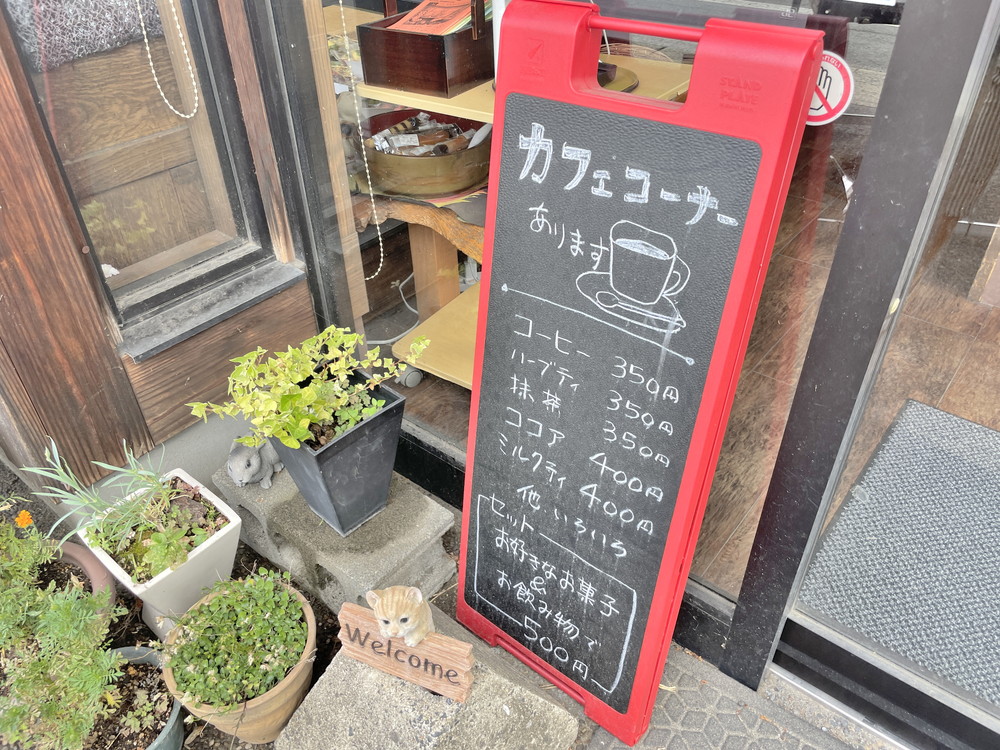 カフェコーナー
あります
コーヒー 350円
ハーブティ 350円
抹茶 350円
ココア 400円
ミルクティ 400円
他 いろいろ
セット
お好きなお菓子
&
お飲み物で
500円
Welcome